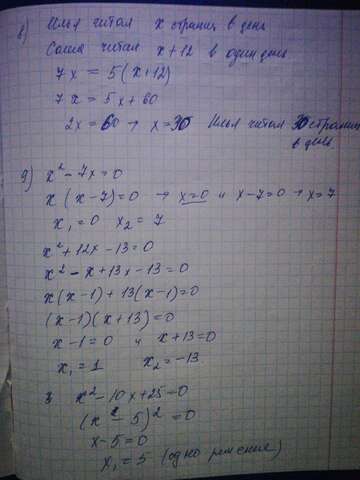 8) Илья читал x страниц в день
Саша читал x+12 в один день
7x = 5(x+12)
7x = 5x + 60
2x = 60 → x = 30 Илья читал 30 страниц
в день
9) x² - 7x = 0
x(x-7) = 0 → x=0 и x-7=0 → x=7
x₁ = 0 x₂ = 7
x² + 12x - 13 = 0
x² - x + 13x - 13 = 0
x(x-1) + 13(x-1) = 0
(x-1)(x+13) = 0
x-1=0 и x+13=0
x₁ = 1 x₂ = -13
3 x² - 10x + 25 = 0
(x - 5)² = 0
x-5=0
x₁ = 5 (одно решение)